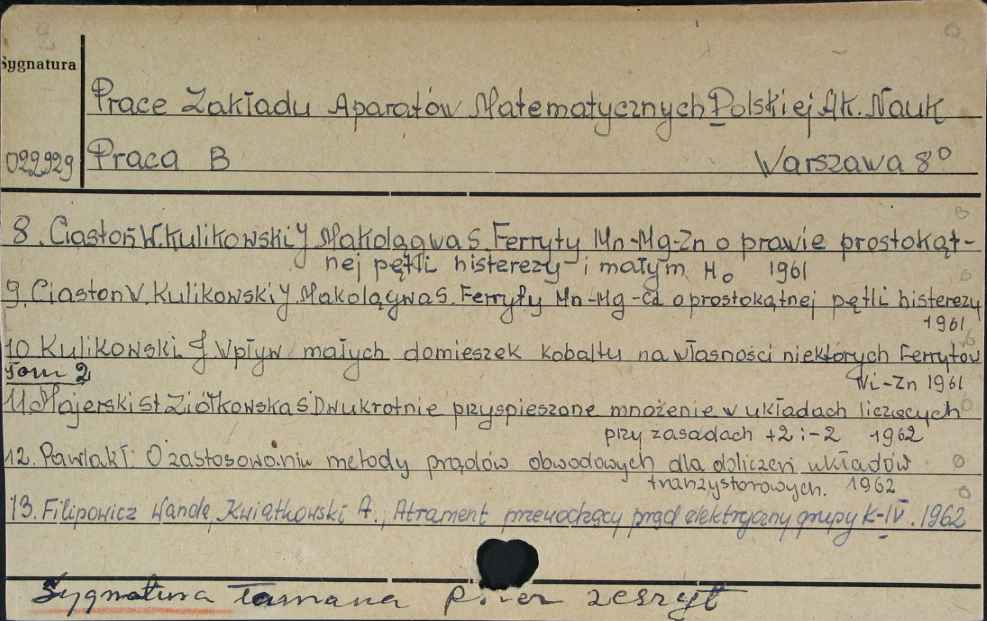 Sygnatura
Prace Zakładu Aparatów Matematycznych Polskiej Ak. Nauk
022929 Praca B Warszawa 8°
8. Ciastoń W. Kulikowski J Makolągwa S. Ferryty Mn-Mg-Zn o prawie prostokąt-
nej pętli histerezy i małym Ho 1961
9. Ciaston W. Kulikowski J. Makolągwa S. Ferryty Mn-Mg-Cd o prostokątnej pętli histerezy
1961
10 Kulikowski J Wpływ małych domieszek kobaltu na własności niektórych Ferrytów
Tom 2 Ni-Zn 1961
11 Majerski St Ziółkowska S Dwukrotnie przyspieszone mnożenie w układach liczących
przy zasadach +2 i -2 1962
12. Pawlak T. O zastosowaniu metody prądów obwodowych dla obliczeń układów
tranzystorowych. 1962
13. Filipowicz Wanda, Kwiatkowski A., Atrament przewodzący prąd elektryczny grupy K-IV. 1962
Sygnatura łamana przez zeszyt